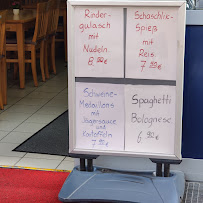 Rinder-
gulasch
mit
Nudeln
8.90€
Schaschlik-
Spieß
mit
Reis
7.50€
Schweine-
Medaillons
mit
Jägersauce
und
Kartoffeln
Spaghetti
Bolognese
6.90€